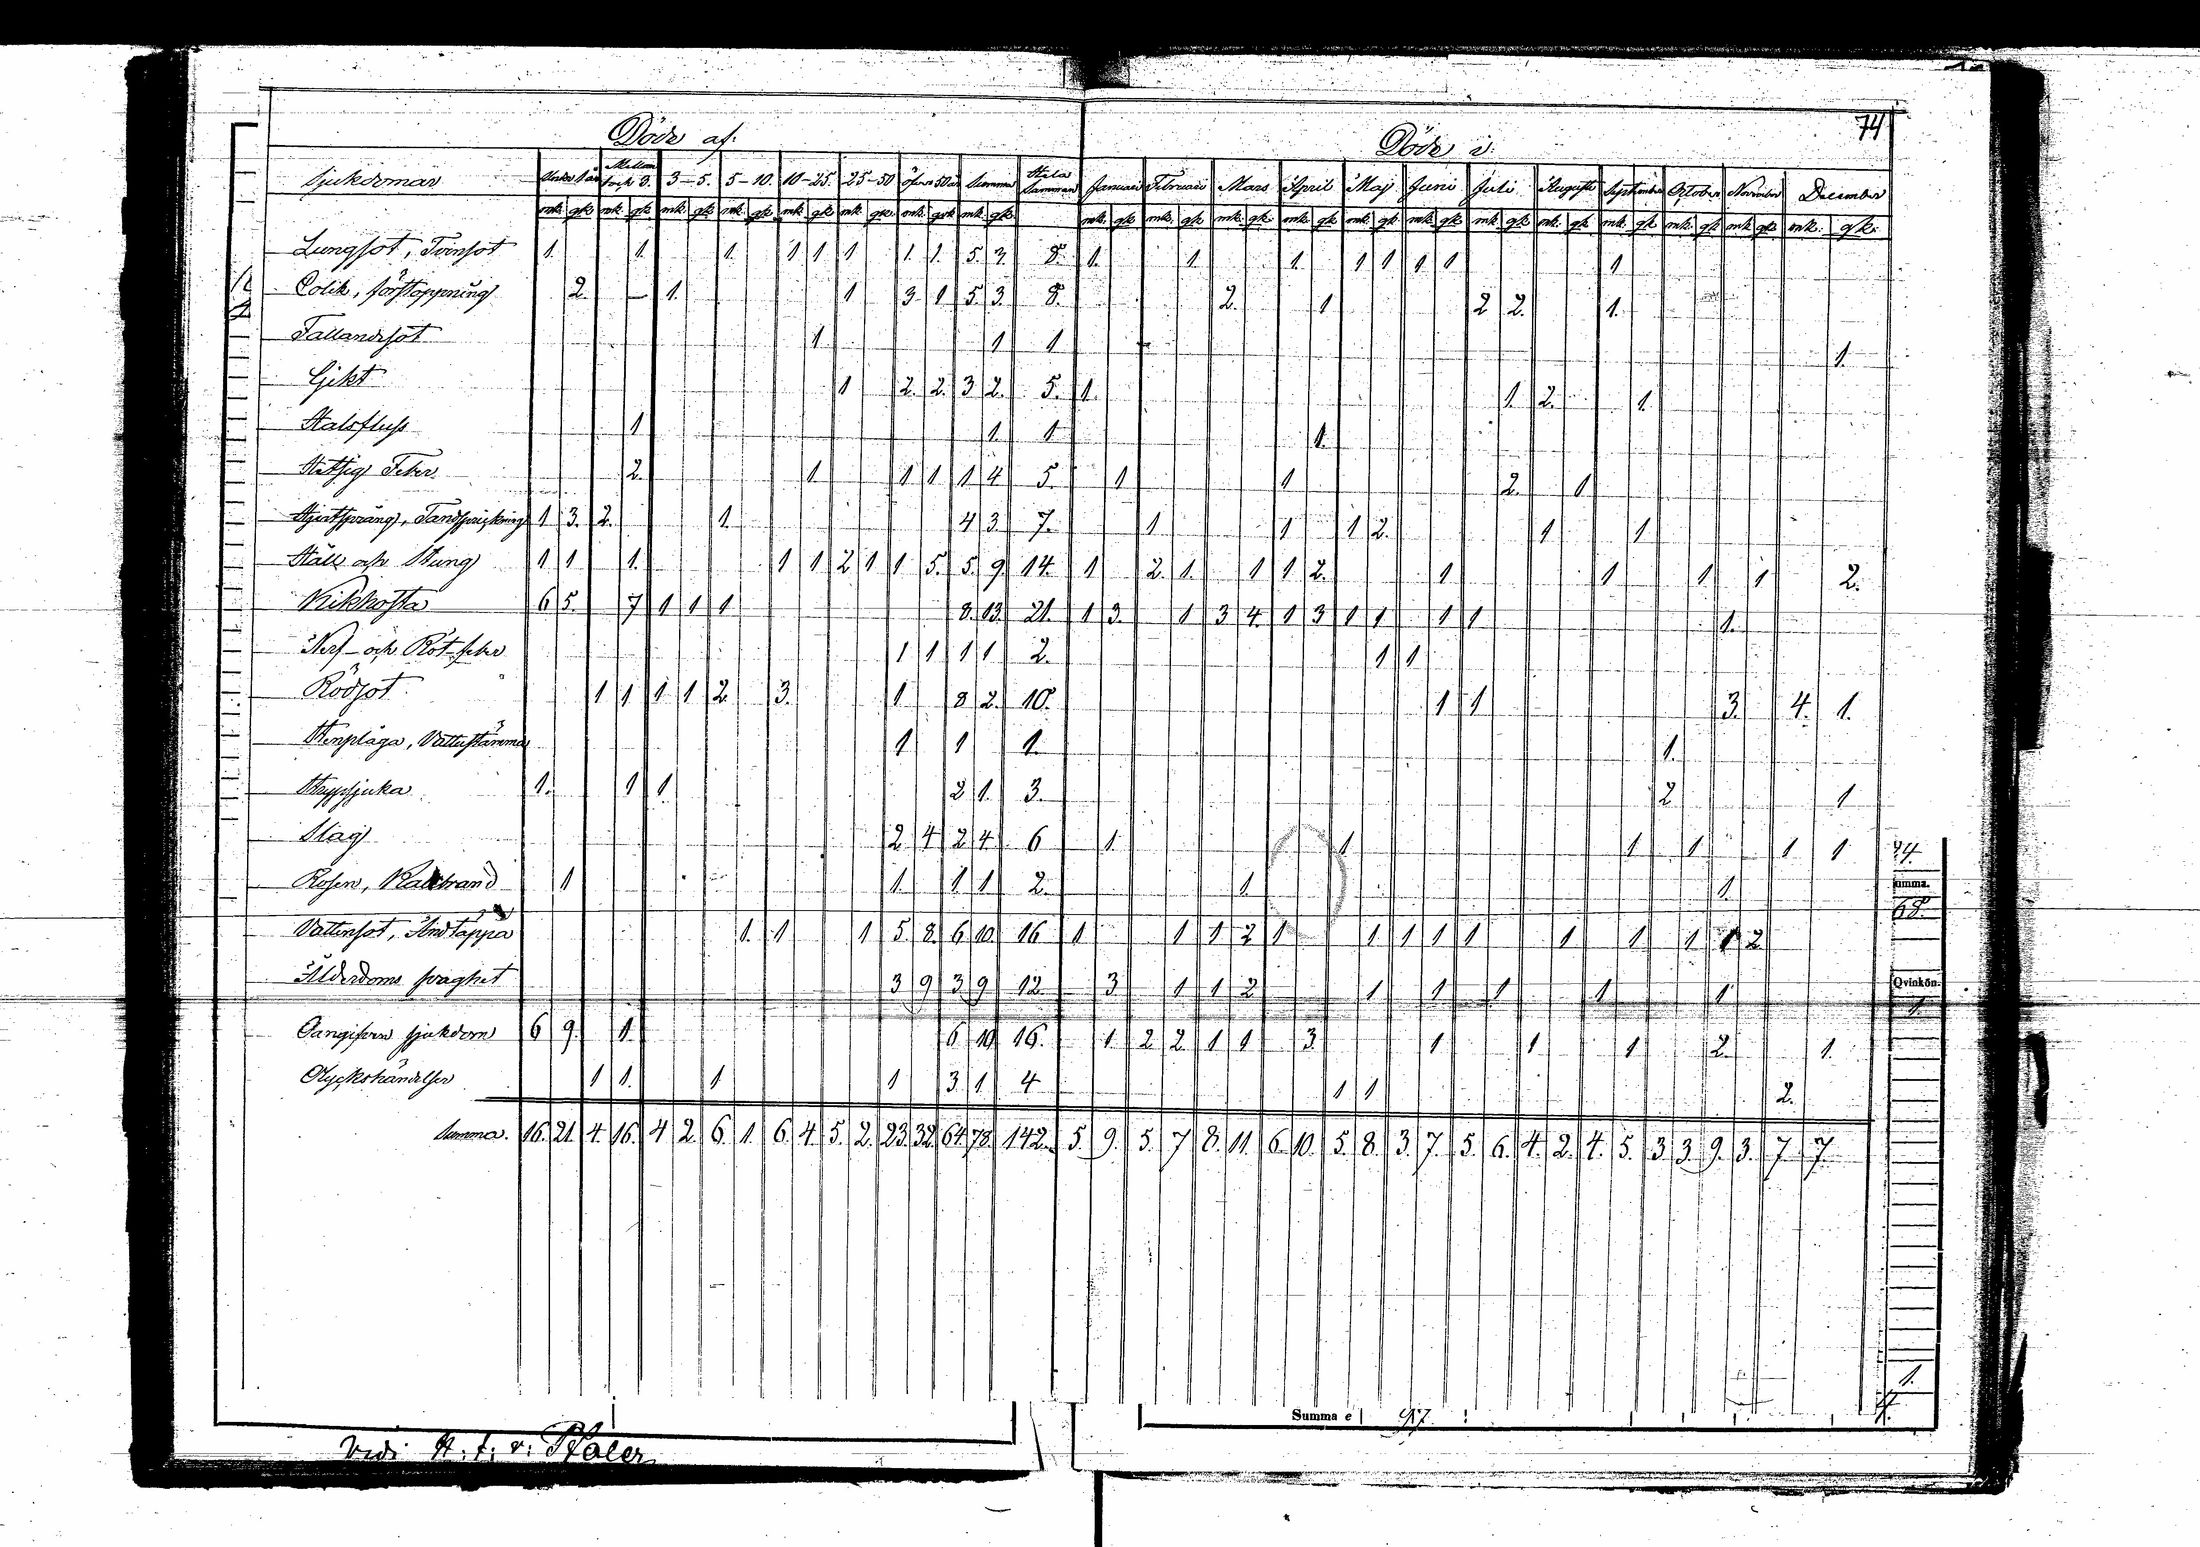 74
Döde af. Döde i.
Sjukdomar Under 1 år Mellan 1 och 3. 3-5. 5-10. 10-25. 25-50 öfver 50 år Summa Hela Summan Januari Februari Mars April Maj Juni Juli Augusti September October November December
mk. qk mk. qk mk. qk mk. qk mk. qk mk. qk. mk. qvk mk. qk. mk. qk mk. qk mk. qk. mk. qk mk. qk mk. qk mk. qk mk. qk mk. qk mk. qk mk. qk. mk. qk.
Lungsot, Tvinsot 1. 1. 1. 1 1 1 1. 1. 5. 3. 8. 1. 1. 1. 1 1 1 1 1
Colik, förstoppning 2. — 1. 1 3. 1 5. 3. 8. 2. 1 2 2. 1.
Fallandesot 1 1 1 1.
Gikt 1 2. 2. 3 2. 5. 1. 1. 2. 1.
Halsfluss 1 1. 1 1.
Hetsig Feber 2. 1 1 1 1 4 5. 1 1 2. 1
Hjertsprång, Tandsprickning 1 3. 2. 1. 4 3. 7. 1 1 1 2. 1 1
Håll och Stung 1 1 1. 1 1 2 1 1 5. 5. 9. 14. 1 2. 1. 1 1 2. 1 1 1 1 2.
Kikhosta 6 5. 7 1 1 1 8. 13. 21. 1 3. 1 3 4. 1 3 1 1 1 1 1.
Nerf- och Röt-feber 1 1 1 1 2. 1 1
Rödsot 1 1 1 1 2. 3. 1 8 2. 10. 1 1 3. 4. 1.
Stenplåga, Vattustämma 1 1 1. 1.
Strypsjuka 1. 1 1. 2 1. 3. 2 1
Slag 2 4 2 4 6 1. 1 1 1 1 1
Rosen, Kallbrand 1 1. 1 1 2. 1 1.
Vattensot, Andtäppa 1. 1 1 5. 8. 6 10. 16 1 1 1 2 1 1 1 1 1 1 1 1 1 2
Ålderdoms svaghet 3 9 3 9 12 3 1 1 2 1 1 1 1 1
Oangifven sjukdom 6 9. 1. 6 10 16. 1. 2 2. 1 1 3. 1 1 1 2. 1.
Olyckshändelser 1 1. 1 1 3 1 4 1 1 2.
Summa. 16. 21. 4. 16. 4 2. 6. 1. 6. 4. 5. 2. 23. 32. 64. 78. 142. 5. 9. 5. 7 8. 11. 6. 10. 5. 8. 3. 7. 5. 6. 4. 2. 4. 5. 3 3. 9. 3. 7. 7.
umma.
68.
Qvinkön.
1.
1.
4.
Summa e
Vidi